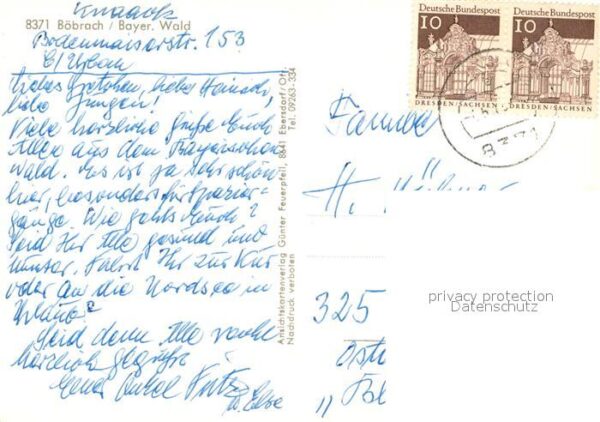 Knaack
8371 Böbrach / Bayer. Wald
Bodenmaiserstr. 153
b/ Urban
Liebes Gretchen, lieber Heinrich,
liebe Jungen!
Viele herzliche Grüße Euch
Allen aus dem Bayerischen
Wald. Es ist ja sehr schön
hier, besonders für Spazier-
gänge. Wie gehts Euch?
Seid Ihr Alle gesund und
munter. Fahrt Ihr zur Kur
oder an die Nordsee in
Urlaub?
Seid denn Alle recht
herzlich gegrüßt
Euer Onkel Fritz
u. Else
Ansichtskartenverlag Günter Feuerpfeil, 8641 Ebersdorf/Ofr.
Tel. 09263-334
Nachdruck verboten
DEUTSCHE BUNDESPOST
10
DRESDEN/SACHSEN
DEUTSCHE BUNDESPOST
10
DRESDEN/SACHSEN
8371
H.
325
privacy protection
Datenschutz